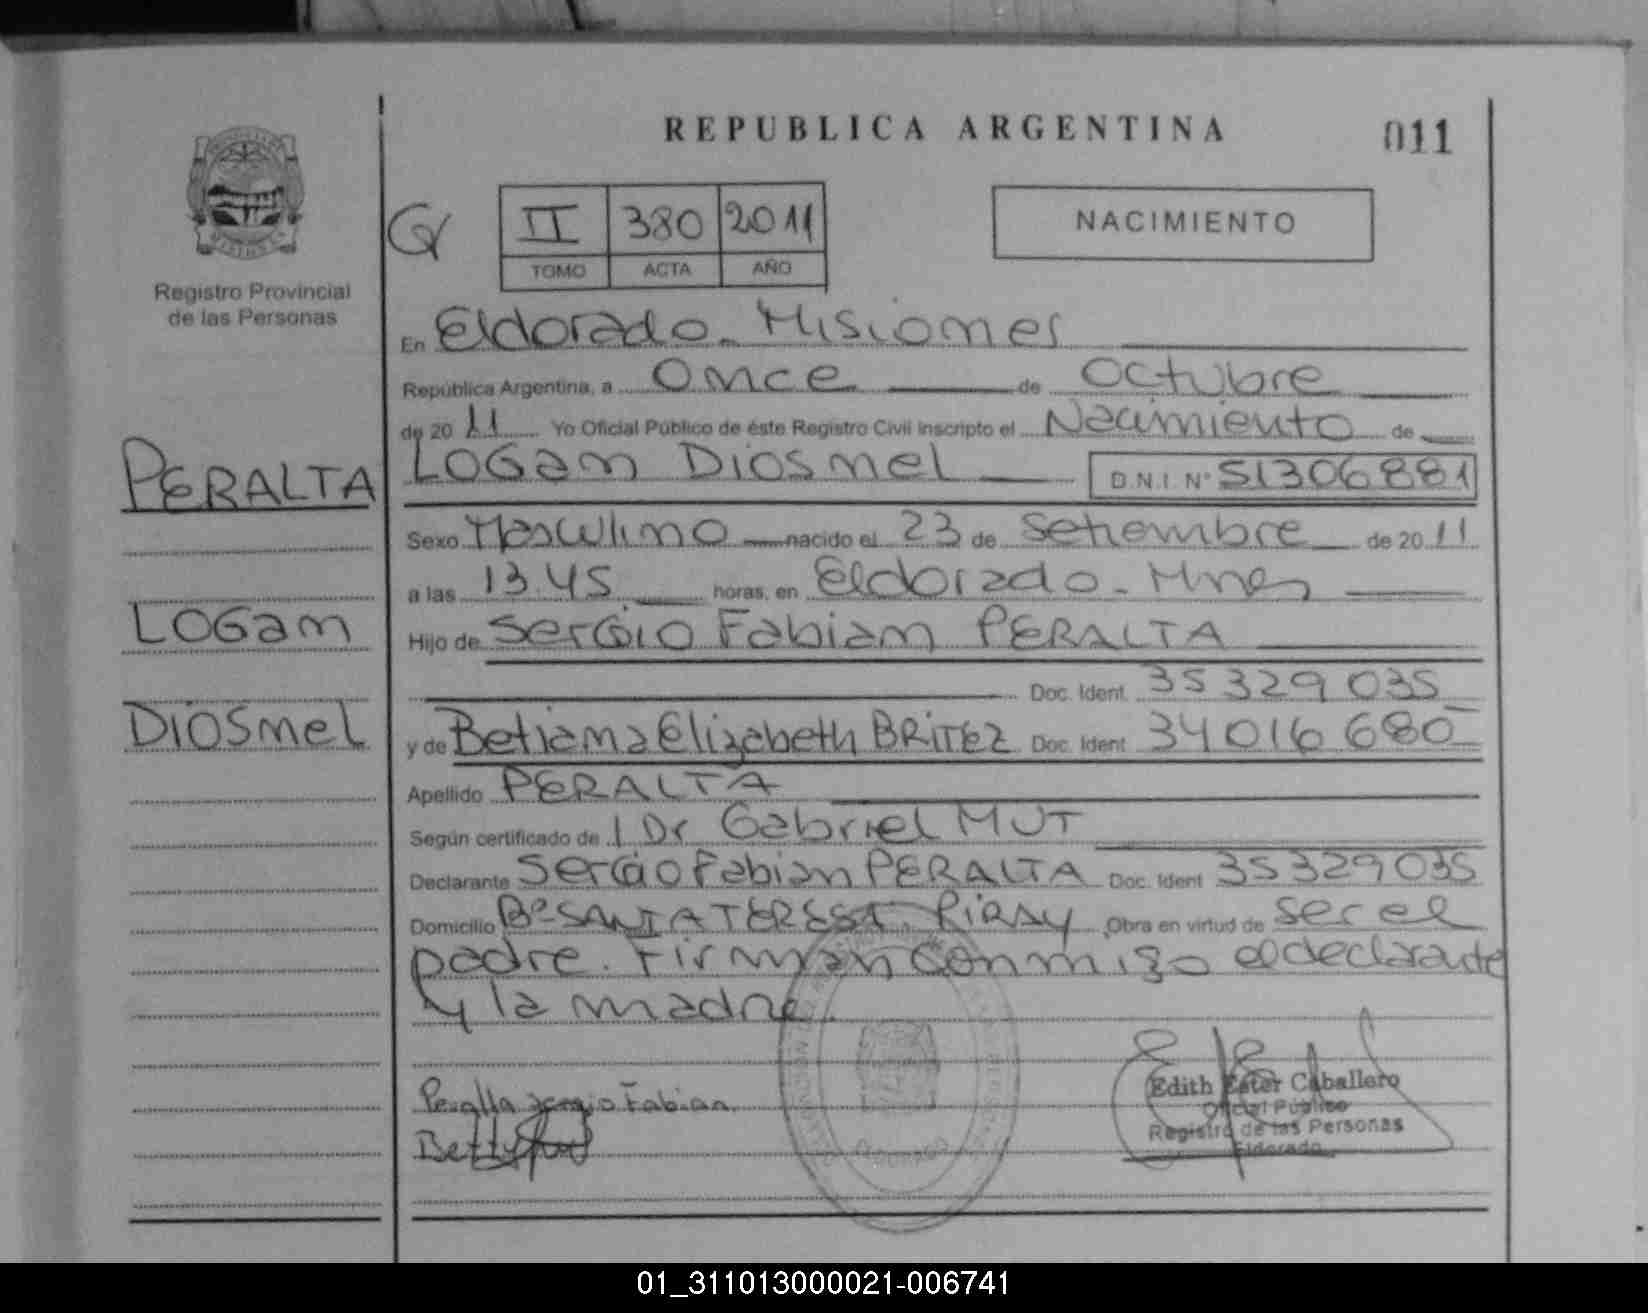 REPUBLICA ARGENTINA
011
MISIONES
Registro Provincial
de las Personas
II 380 2011
TOMO ACTA AÑO
NACIMIENTO
En Eldorado - Misiones
República Argentina, a Once de Octubre
de 2011 Yo Oficial Público de éste Registro Civil Inscripto el Nacimiento de
LOGan DIOSmeL D.N.I. N° 51306881
PERALTA
LOGan
DIOSmeL
Sexo Masculino nacido el 23 de Setiembre de 2011
a las 13.45 horas, en Eldorado - Mnes
Hijo de Sergio Fabian PERALTA
Doc. Ident. 35329035
y de Betiana Elizabeth BRITEZ Doc. Ident 34016680
Apellido PERALTA
Según certificado de l Dr Gabriel MUT
Declarante Sergio Fabian PERALTA Doc. Ident 35329035
Domicilio Bº SANTA TERESA PIRAY Obra en virtud de ser el
padre. Firman conmigo el declarante
y la madre.
Peralta Sergio Fabian
Edith Ester Caballero
Oficial Público
Registro de las Personas
Eldorado
ELDORADO
01_311013000021-006741